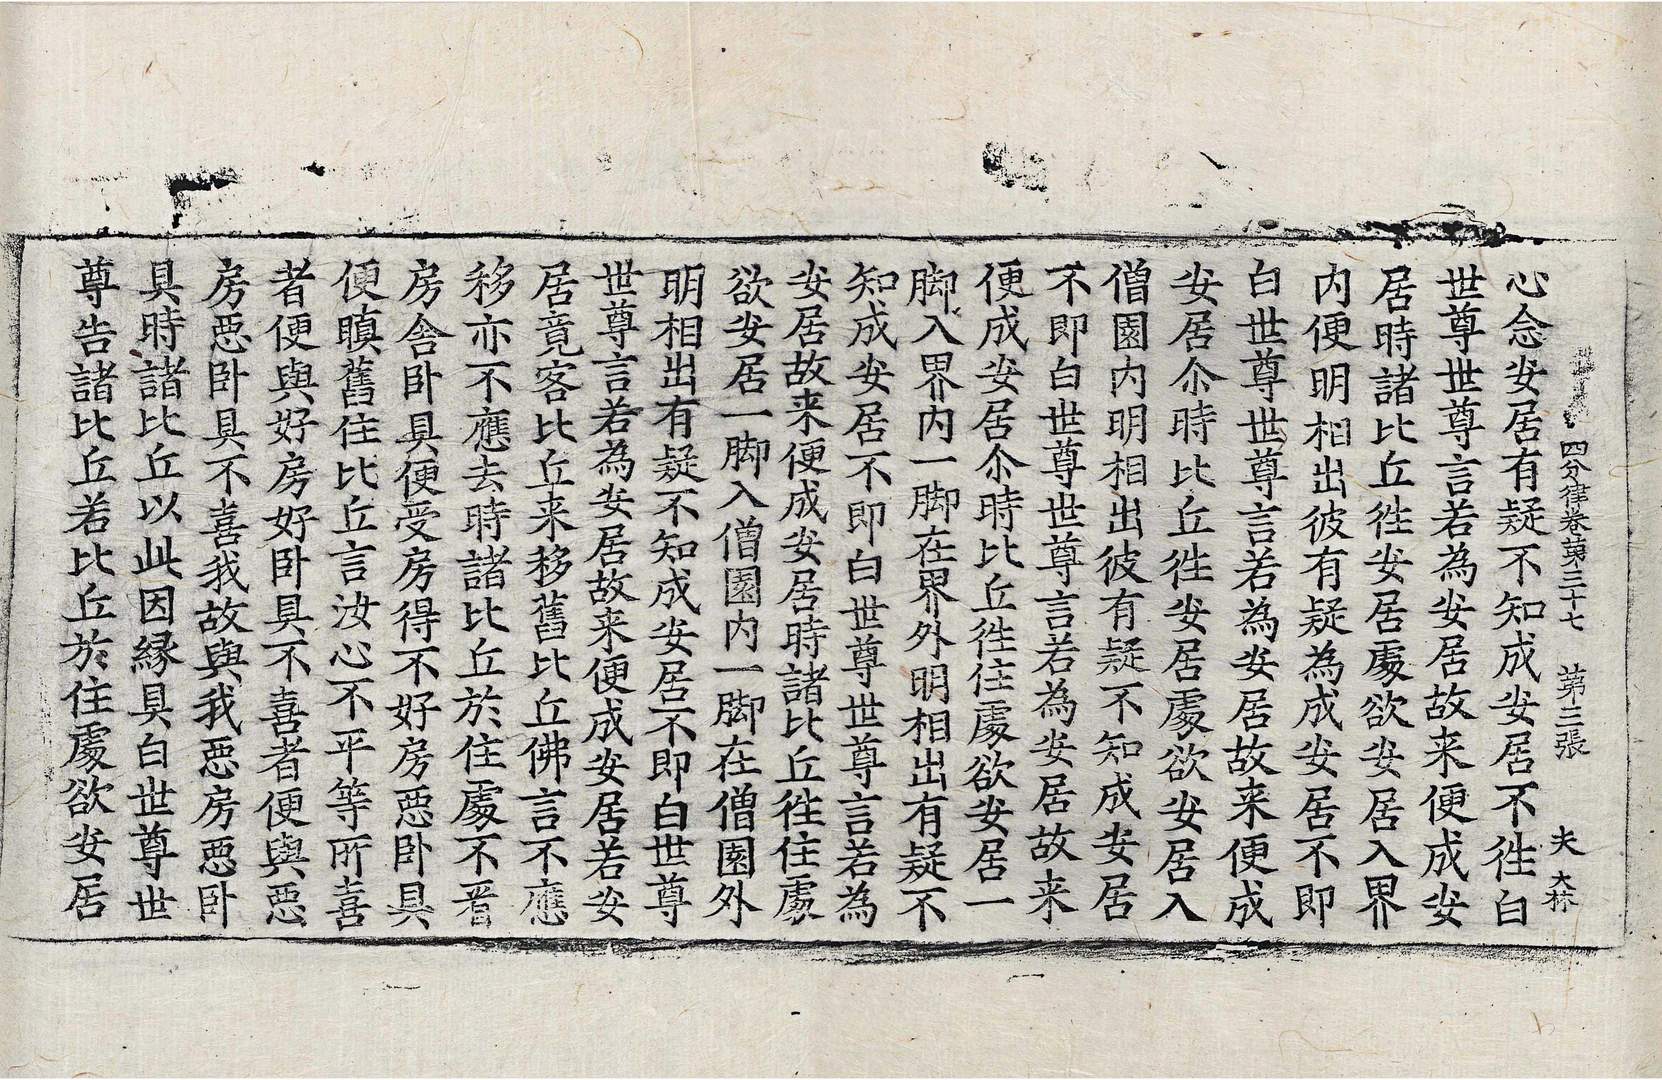 四分律卷第三十七 第三張 夫 大林
心念安居有疑不知成安居不徃白
世尊世尊言若為安居故来便成安
居時諸比丘徃安居處欲安居入界
内便明相出彼有疑為成安居不即
白世尊世尊言若為安居故来便成
安居尒時比丘徃安居處欲安居入
僧園内明相出彼有疑不知成安居
不即白世尊世尊言若為安居故来
便成安居尒時比丘徃住處欲安居一
脚入界内一脚在界外明相出有疑不
知成安居不即白世尊世尊言若為
安居故来便成安居時諸比丘徃住處
欲安居一脚入僧園内一脚在僧園外
明相出有疑不知成安居不即白世尊
世尊言若為安居故来便成安居若安
居竟客比丘来移舊比丘佛言不應
移亦不應去時諸比丘於住處不看
房舍卧具便受房得不好房惡卧具
便瞋舊住比丘言汝心不平等所喜
者便與好房好卧具不喜者便與惡
房惡卧具不喜我故與我惡房惡卧
具時諸比丘以此因縁具白世尊世
尊告諸比丘若比丘於住處欲安居